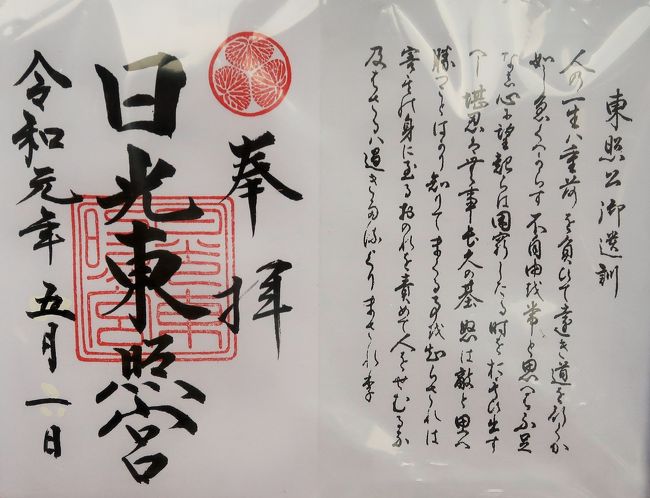 東照公御遺訓
人の一生ハ重荷を負ひて遠き道を行くか
如し急くへからす不自由を常と思へは不足
なし心に望起らは困窮したる時を思ひ出す
へし堪忍は無事長久の基怒は敵と思へ
勝つことはかり知りてまくる事を知らされは
害其の身に至るおのれを責めて人をせむるな
及はさるハ過きたるよりまされり
奉拝
日光東照宮
令和元年五月一日